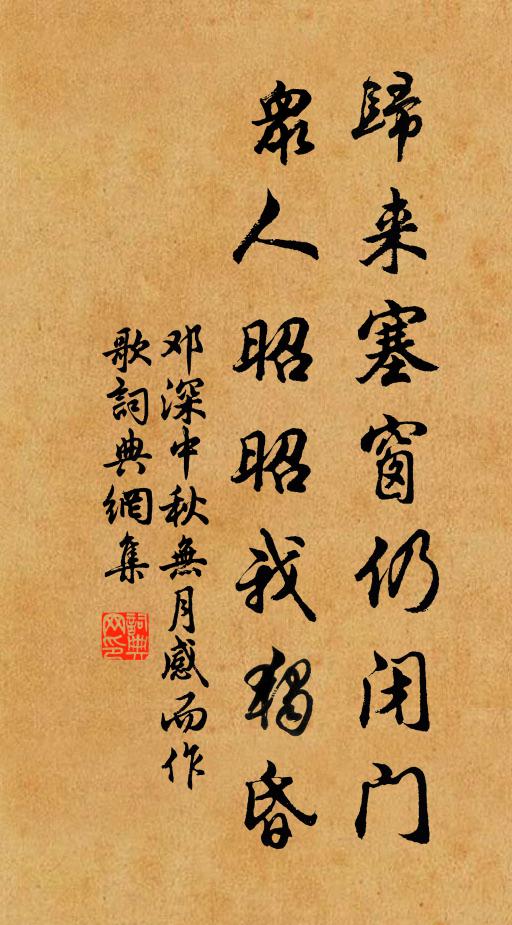 歸来塞窗仍闭门
眾人昭昭我獨昏
邓深中秋無月感而作
歌詞典網集
詞典
网印